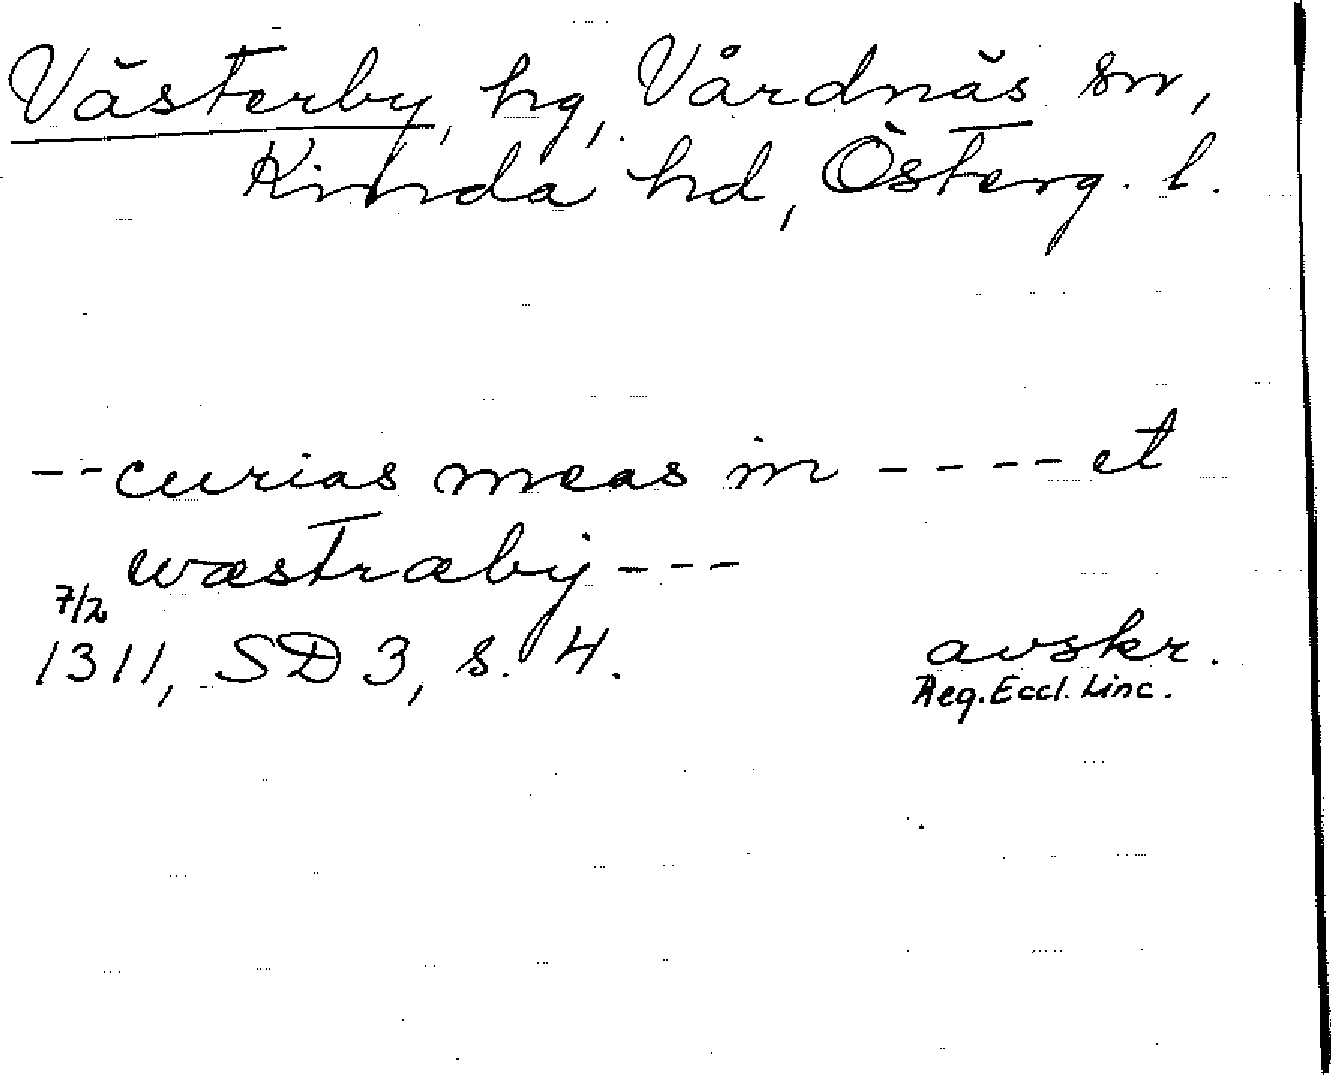 Västerby, hg, Vårdnäs sn,
Kinda hd, Österg. l.
-- curias meas in ---- et
wæstræby ---
7/2
1311, SD 3, s. 4. avskr.
Reg. Eccl. Linc.